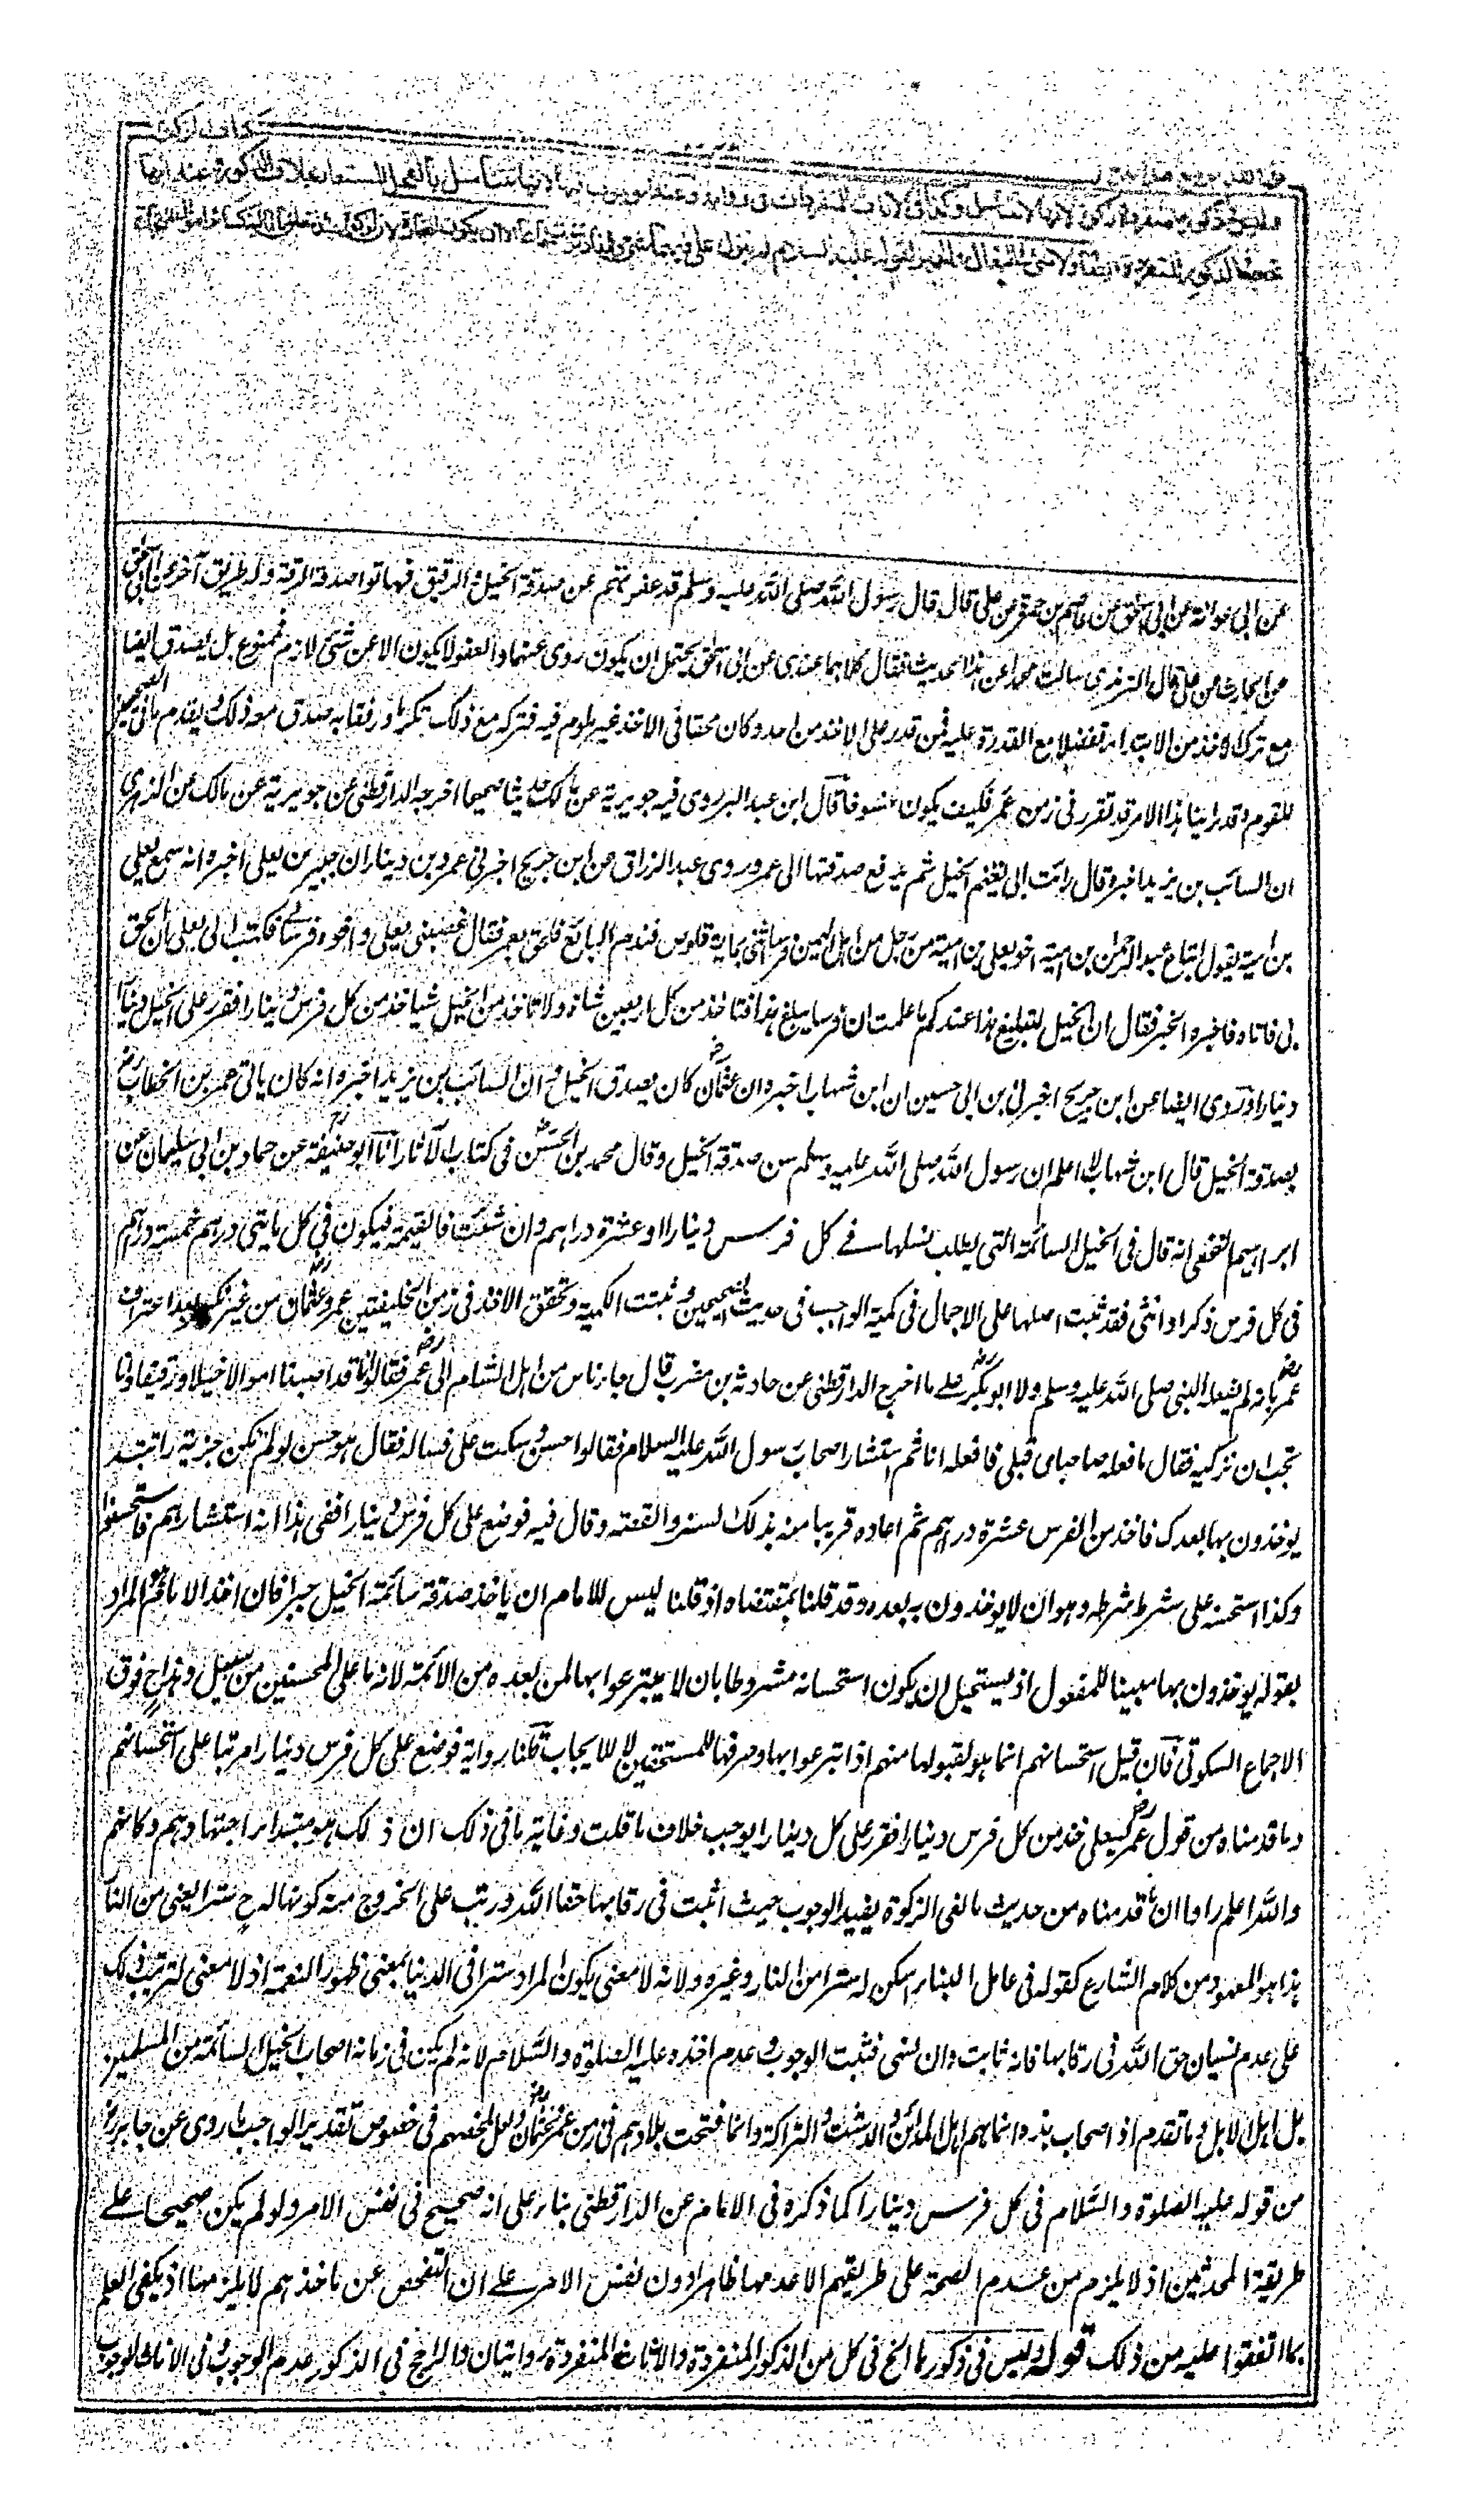 وليس في ذكورها منفردة زكوة لانها لا تتناسل وكذا في الاناث المنفردات في رواية وعنه الوجوب فيها لانها تتناسل بالفحل المستعار بخلاف الذكور وعنه انها
تجب في الذكور المنفردة ايضا ولا شئ في البغال والحمير لقوله عليه السلام لم ينزل علي فيهما شئ
عن ابي عوانة عن ابي اسحق عن عاصم بن ضمرة عن علي قال قال رسول الله صلى الله عليه وسلم قد عفوت لكم عن صدقة الخيل والرقيق فهاتوا صدقة الرقة وله طريق آخر عن ابي اسحق
عن الحارث عن علي قال الترمذي سالت محمدا عن هذا الحديث فقال كلاهما عندي عن ابي اسحق يحتمل ان يكون روى عنهما والعفو لا يكون الا عن شئ لازم فممنوع بل يصدق ايضا
مع ترك الاخذ من الابتداء تفضلا مع القدرة عليه فمن قدر على الاخذ من احد وكان محقا في الاخذ غير ملوم فيه فتركه مع ذلك تكرما ورفقا به صدق معه ذلك ويقدم ما في الصحيحين
للقوم وقد راينا هذا الامر قد تقرر في زمن عمر فكيف يكون منسوخا قال ابن عبد البر روى فيه جويرية عن مالك حديثا صحيحا اخرجه الدارقطني عن جويرية عن مالك عن الزهري
ان السائب بن يزيد اخبره قال رايت ابي يقيم الخيل ثم يدفع صدقتها الى عمر وروى عبد الرزاق عن ابن جريج اخبرني عمرو بن دينار ان جبير بن يعلى اخبره انه سمع يعلى
بن امية يقول ابتاع عبد الرحمن بن امية اخو يعلى بن امية من رجل من اهل اليمن فرسا انثى بماية قلوص فندم البائع فلحق بعمر فقال غصبني يعلى واخوه فرسا لي فكتب الى يعلى ان الحق
بي فاتاه فاخبره الخبر فقال ان الخيل لتبلغ هذا عندكم ما علمت ان فرسا يبلغ هذا فتاخذ من كل اربعين شاة ولا تاخذ من الخيل شيا خذ من كل فرس دينارا فقرر على الخيل دينارا
دينارا وروى ايضا عن ابن جريج اخبرني ابن ابي حسين ان ابن شهاب اخبره ان عثمان رض كان يصدق الخيل وان السائب بن يزيد اخبره انه كان ياتي عمر بن الخطاب رض
بصدقة الخيل قال ابن شهاب لا اعلم ان رسول الله صلى الله عليه وسلم سن صدقة الخيل وقال محمد بن الحسن في كتاب الآثار انا ابو حنيفة عن حماد بن ابي سليمان عن
ابراهيم النخعي انه قال في الخيل السائمة التي يطلب نسلها في كل فرس دينارا او عشرة دراهم وان شئت فالقيمة فيكون في كل مايتي درهم خمسة دراهم
في كل فرس ذكرا او انثى فقد ثبت اصلها على الاجمال في كمية الواجب في حديث الصحيحين وثبتت الكمية وتحقق الاخذ في زمن الخليفتين عمر وعثمان من غير نكير بعد اعتراف
عمر رض بانه لم يفعله النبي صلى الله عليه وسلم ولا ابو بكر رض على ما اخرج الدارقطني عن حارثة بن مضرب قال جاء ناس من اهل الشام الى عمر رض فقالوا انا قد اصبنا اموالا خيلا ورقيقا وانا
نحب ان نزكيه فقال ما فعله صاحباي قبلي فافعله انا ثم استشار اصحاب رسول الله عليه السلام فقالوا حسن وسكت علي فساله فقال هو حسن لو لم تكن جزية راتبة
يوخذون بها بعدك فاخذ من الفرس عشرة دراهم ثم اعاده قريبا منه بذلك السند والقصة وقال فيه فوضع على كل فرس دينارا ففي هذا انه استشارهم فاستحسنوا
وكذا استحسنه علي بشرط شرطه وهو ان لا يوخذون به بعده وقد قلنا بمقتضاه اذ قلنا ليس للامام ان ياخذ صدقة سائمة الخيل جبرا فان اخذ الامام هو المراد
بقوله يوخذون بها مبينا للمفعول اذ يستحيل ان يكون استحسانه مشروطا بان لا يتبرعوا بها لمن بعده من الائمة لانه ما على المحسنين من سبيل وهذا ح فوق
الاجماع السكوتي فان قيل استحسانهم انما هو لقبولها منهم اذا تبرعوا بها وصرفها للمستحقين لا للايجاب قلنا رواية فوضع على كل فرس دينارا مرتبا على استحسانهم
وما قدمناه من قول عمر رض ليعلى خذ من كل فرس دينارا فقرر على كل دينارا يوجب خلاف ما قلت وغاية ما في ذلك ان ذلك هو مبتدا اجتهادهم وكانهم
والله اعلم راوا ان ما قدمناه من حديث مانعي الزكوة يفيد الوجوب حيث اثبت في رقابها حقا لله ورتب على الخروج منه كونها له ح سترا يعني من النار
هذا هو المعهود من كلام الشارع كقوله في عامل البنات كن له سترا من النار وغيره ولانه لا معنى لكون المراد سترا في الدنيا بمعنى ظهور النعمة اذ لا معنى لترتيب ذلك
على عدم نسيان حق الله في رقابها فانه ثابت وان نسي فثبت الوجوب وعدم اخذه عليه الصلوة والسلام لانه لم يكن في زمانه اصحاب الخيل السائمة من المسلمين
بل اهل الابل وما تقدم اذ اصحاب هذه انما هم اهل المدائن والدشت والتراكمة وانما فتحت بلادهم في زمن عمر وعثمان رض ولعل ملحظهم في خصوص تقدير الواجب ما روى عن جابر رض
من قوله عليه الصلوة والسلام في كل فرس دينارا كما ذكره في الامام عن الدارقطني بناء على انه صحيح في نفس الامر ولو لم يكن صحيحا على
طريقة المحدثين اذ لا يلزم من عدم الصحة على طريقهم الا عدمها ظاهرا دون نفس الامر على ان الفحص عن ماخذهم لا يلزمنا اذ يكفي العلم
بما اتفقوا عليه من ذلك قوله وليس في ذكورها الخ في كل من الذكور المنفردة والاناث المنفردة روايتان والراجح في الذكور عدم الوجوب وفي الاناث الوجوب